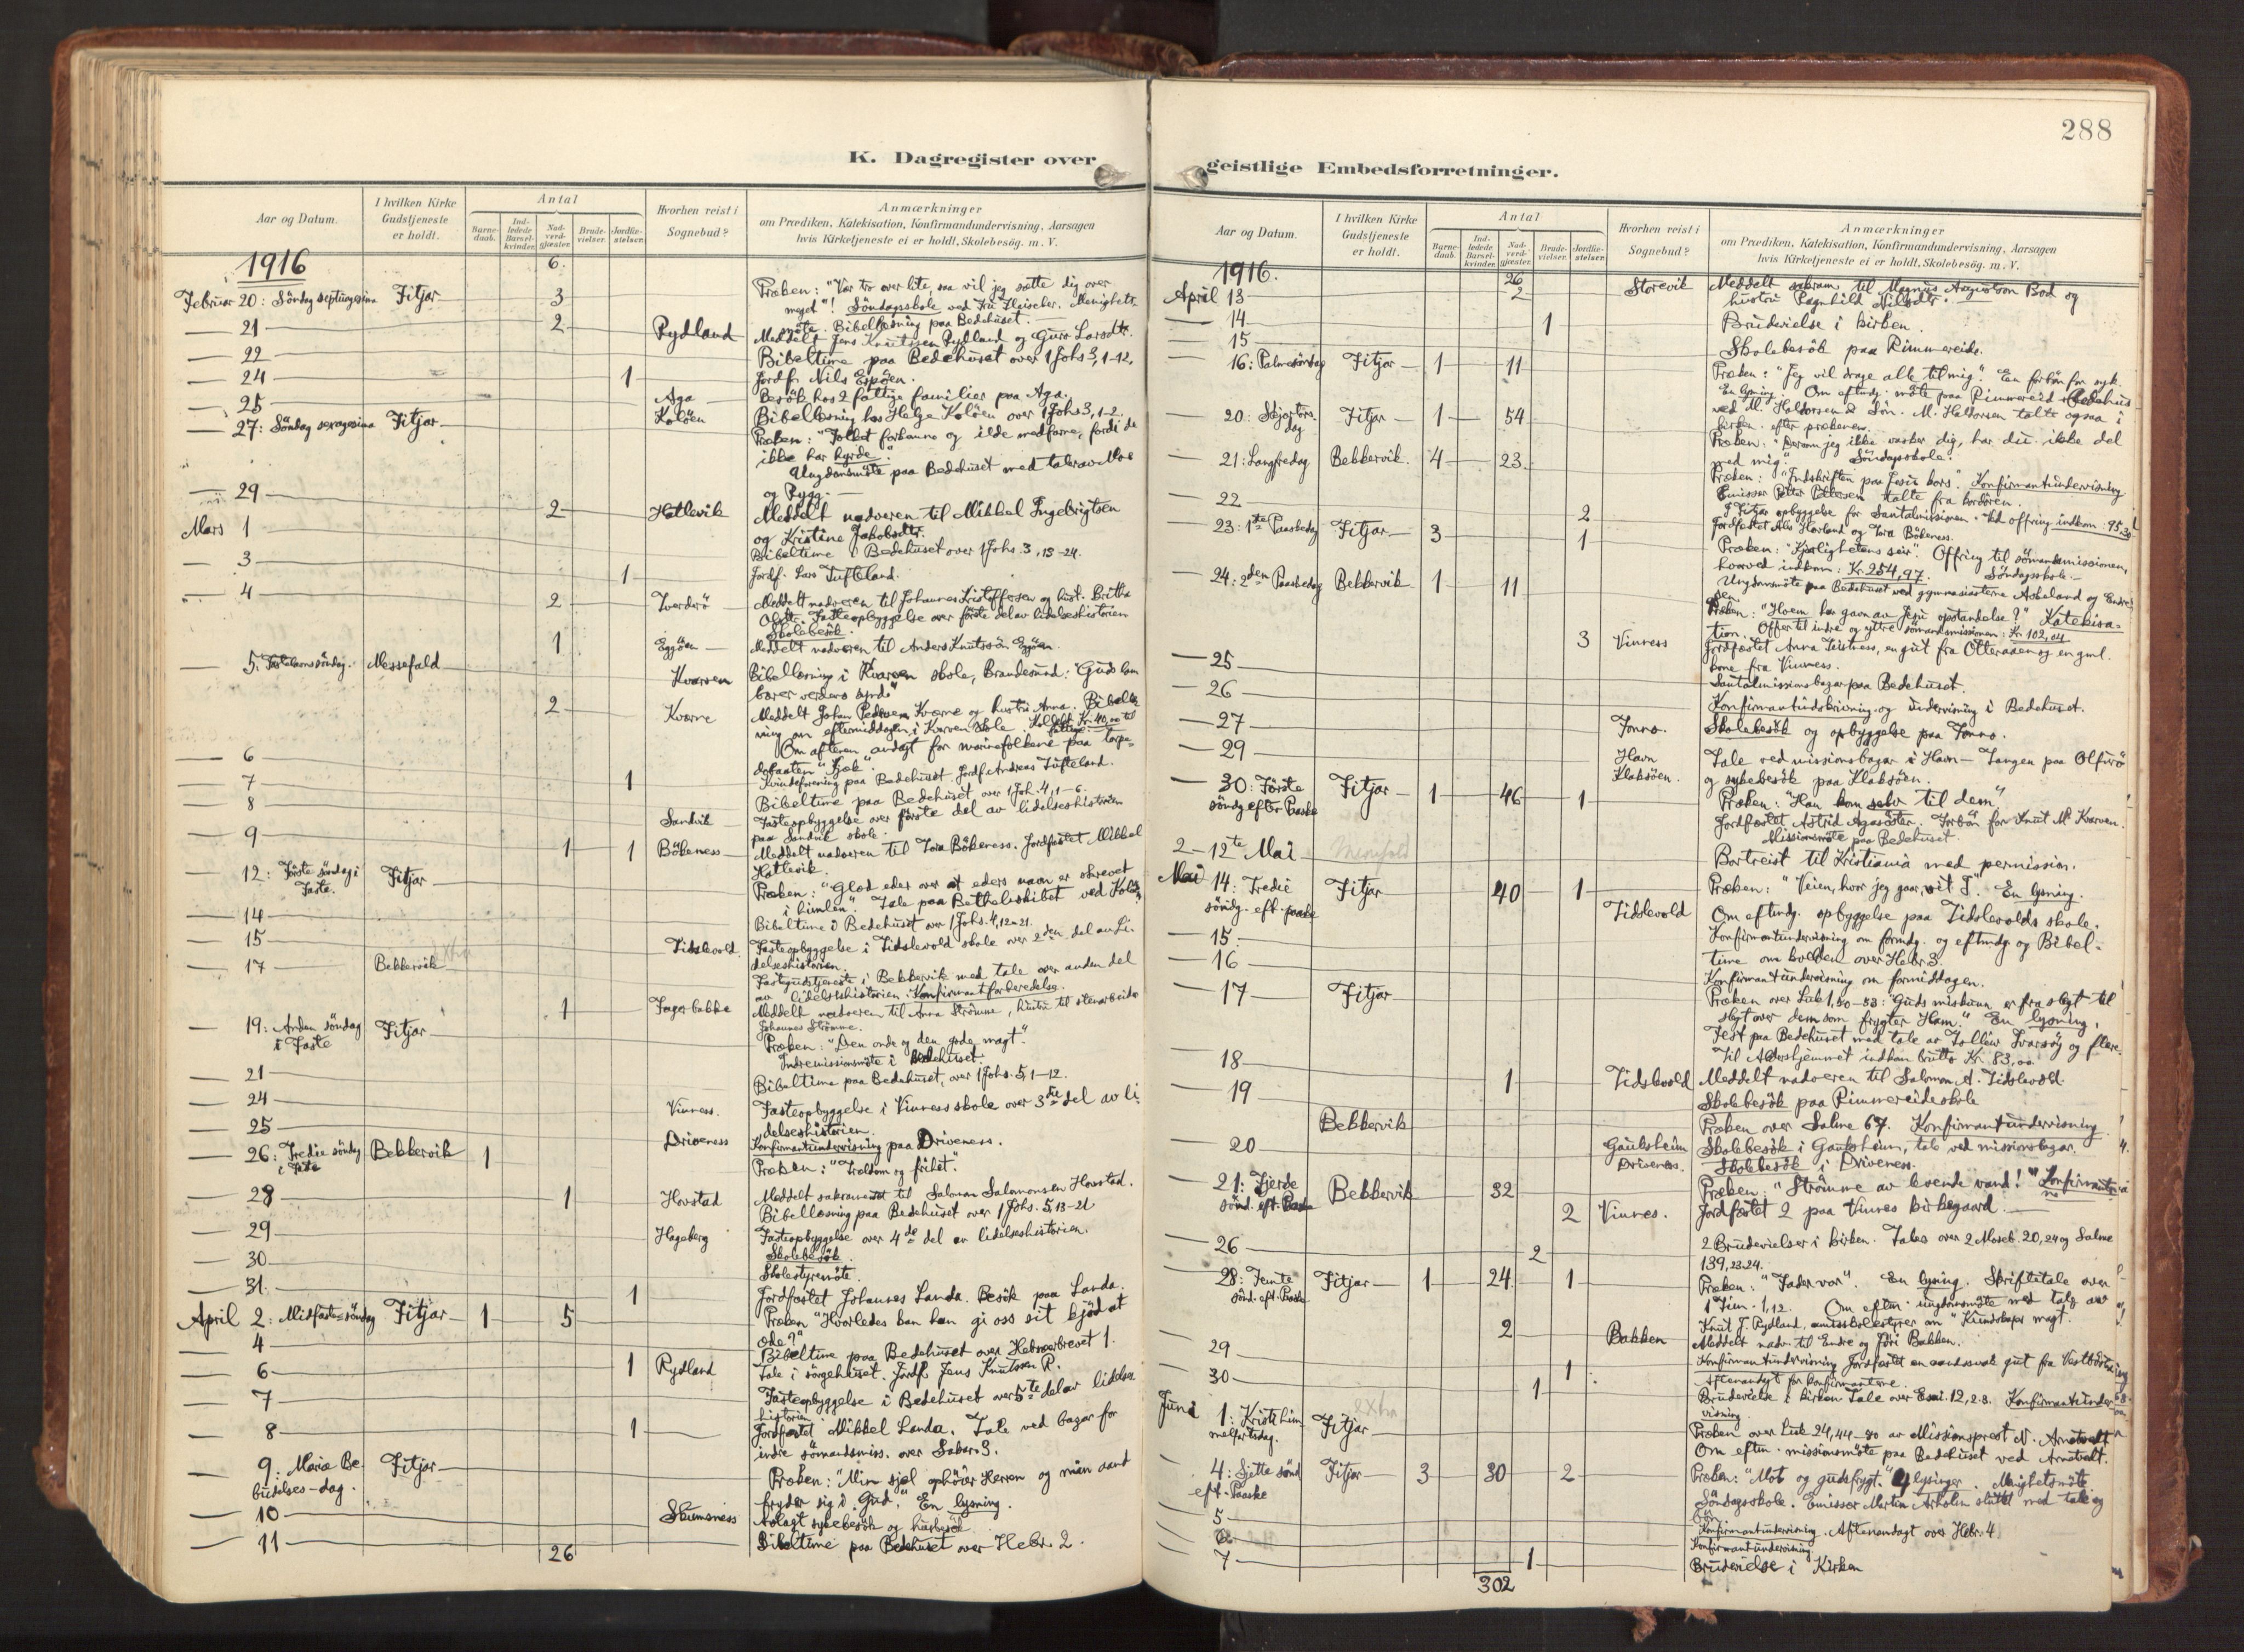 288
K. Dagregister over
geistlige Embedsforretninger.
Aar og Datum.
I hvilken Kirke Gudstjeneste er holdt.
Antal
Barne-daab.
Ind-ledede Barsel-kvinder.
Nad-verd-gjester.
Brude-vielser.
Jordfæ-stelser.
Hvorhen reist i Sognebud?
Anmærkninger
om Prædiken, Katekisation, Konfirmandundervisning, Aarsagen
hvis Kirketjeneste ei er holdt, Skolebesög. m. V.
1916
6.
Februar 20: Söndag septuagesima Fitjar 3 Præken: "Vær tro over lite, saa vil jeg sætte dig over
meget"! Söndagsskole ved Fru Fleischer. Menighets-
møte. Bibellæsning paa Bedehuset.
21 2 Rydland Meddelt Jens Knutssen Rydland og Guro Larsdtr.
22 Bibeltime paa Bedehuset over 1 Johs 3, 1-12.
24 1 Jordf. Nils Espöen.
25 Aga Besök hos 2 fattige familier paa Aga.
Kolöen Bibellæsning hos Helge Kolöen over 1 Johs 3, 1-2.
27: Söndag sexagesima Fitjar Præken: "Folket forkomne og ilde medfarne, fordi de
ikke har hyrde."
Ungdomsmöte paa Bedehuset med taler av Moe
og Rygg.
29 2 Hatlevik Meddelt nadveren til Mikkel Ingebrigtsen
og Kristine Jakobsdtr.
Mars 1 Bibeltime i Bedehuset over 1 Johs. 3, 13-24.
3 1 Jordf. Lars Tufteland.
4 2 Iverdrö Meddelt nadveren til Johannes Kristoffersen og hust. Britha
Olsdtr. Fasteopbyggelse over förste del av lidelseshistorien
Skolebesök.
1 Eggöen Meddelt nadveren til Anders Knutssön Eggöen.
5. Fastelavnssöndag. Messefald Kvarven Bibellæsning i Kvarven skole, Brandesund: "Guds lam
bærer verdens synd."
2 Kværne Meddelt Johan Pedersen Kværne og hustru Anna. Bibellæs-
ning om eftermiddagen i Kvarven skole. Kollekt Kr. 40,00 til
fattige.
Om aftenen andagt for marinefolkene paa torpe-
dobaaten "Kjæk".
6 Kvindeforening paa Bedehuset
7 1 Jordf. Andreas Tufteland.
8 Bibeltime paa Bedehuset over 1 Joh. 4, 1-6.
Sandvik Fasteopbyggelse over förste del av lidelseshistorien
paa Sandvik skole.
9 1 1 Bökeness Meddelt nadveren til Tora Bökeness. Jordfæstet Mikkel
Hatlevik.
12: Förste söndag i Faste. Fitjar Præken: "Glæd eder over at eders navn er skrevet
i himlen". Tale paa Bethelskibet ved
14 Bibeltime i Bedehuset over 1 Johs. 4, 12-21.
15 Tidslevold. Fasteopbyggelse i Tidslevold skole over 2den del av Li-
delseshistorien.
17 Bekkervik Fastegudstjeneste i Bekkervik med tale over anden del
av lidelseshistorien. Konfirmantforberedelse.
1 Fagerbakke Meddelt nadveren til Anna Strömme, hustru til stenarbeider
Johannes Strömme.
19: Anden söndag i Faste Fitjar Præken: "Den onde og den gode magt".
Indremissionsmöte i Bedehuset.
21 Bibeltime paa Bedehuset, over 1 Johs. 5, 1-12.
24 Vinness. Fasteopbyggelse i Vinness skole over 3die del av li-
delseshistorien.
25 Driveness Konfirmantundervisning paa Driveness.
26: Tredie söndag i Faste Bekkervik 1 Præken: "Trældom og frihet".
28 1 Hovstad Meddelt sakramentet til Salomon Salomonsen Hovstad.
Bibellæsning paa Bedehuset over 1 Johs. 5, 13-21
29 Hageberg Fasteopbyggelse over 4de del av lidelseshistorien.
Skolebesök.
30 Skolestyremöte.
31. 1 Jordfæstet Johannes Landa. Besök paa Landa.
April 2: Midfaste-söndag Fitjar 1 5 Præken "Hvorledes kan han gi oss sit kjöd at
æde?"
4 Bibeltime paa Bedehuset over Hebræerbrevet 1.
6 1 Rydland Tale i sörgehuset. Jordf. Jens Knutssen R.
7 Fasteopbyggelse i Bedehuset over 5te del av lidelses
historien.
8 1 Jordfæstet Mikkel Landa. Tale ved bazar for
indre sömandsmiss. over Sakar. 3.
9: Mariæ Be-budelses-dag. Fitjar Præken: "Min sjæl ophöier Herren og min aand
fryder sig i Gud." En lysning.
10 Skumsness Avlagt sykebesök og husbesök
11 Bibeltime paa Bedehuset over Hebr. 2.
26
Aar og Datum.
I hvilken Kirke Gudstjeneste er holdt.
Antal
Barne-daab.
Ind-ledede Barsel-kvinder.
Nad-verd-gjester.
Brude-vielser.
Jordfæ-stelser.
Hvorhen reist i Sognebud?
Anmærkninger
om Prædiken, Katekisation, Konfirmandundervisning, Aarsagen
hvis Kirketjeneste ei er holdt, Skolebesög. m. V.
1916.
26
April 13 2 Storevik Meddelt sakram. til Magnus Augustson Bod og
hustru Ragnhild Nilsdtr.
14 1 Brudevielse i kirken.
15 Skolebesök paa Rimmereide.
16: Palmesöndag Fitjar 1 11 Præken: "Jeg vil drage alle til mig". En forbön for syk.
En lysning. Om eftmdg. möte paa Rimmereid Bedehus
ved M. Halvorsen & Sön. M. Halvorsen talte ogsaa i
kirken efter prækenen.
20: Skjærtors-dag Fitjar 1 54 Præken: "Dersom jeg ikke vasker dig, har du ikke del
med mig." Söndagsskole.
21: Langfredag Bekkervik. 4 23. Præken: "Indskriften paa Jesu kors". Konfirmantundervisning
Emissær Petter Pettersen talte fra kordören.
I Fitjar opbyggelse for Santalmissionen. Ved offring indkom: 95,30
22 2 Jordfæstet Als Hovland og Tora Bökeness.
23: 1ste Paaskedag Fitjar 3 1 Præken: "Kjærlighetens seir". Offring til sömandsmissionen,
hvorved indkom: Kr. 254,97. Söndagsskole.
Ungdomsmöte paa Bedehuset ved gymnasiasterne Askeland og Endre-
sen.
24: 2den Paaskedag Bekkervik 1 11 Præken: "Hvem har gavn av Jesu opstandelse?" Katekisa-
tion. Offer til indre og ytre sömandsmissionen: Kr. 102,04
3 Vinness Jordfæstet Anna Teistness, en gut fra Otteraaen og en gml.
kone fra Vinness.
25 Santalmissionsbazar paa Bedehuset.
26 Konfirmantindskrivning og undervisning i Bedehuset.
27 Fonno. Skolebesök og opbyggelse paa Fonno.
29 Havn Klaksöen. Tale ved missionsbazar i Havn - Tangen paa
og sykebesök paa Klaksöen.
30: Förste söndg. efter Paaske Fitjar 1 46 1 Præken: "Han kom selv til dem".
Jordfæstet Astrid Agasöster. Forbön for Knut M. Kvarven.
Missionsmöte paa Bedehuset.
2-12te Mai Messefald Bortreist til Kristiania med permission.
Mai 14: Tredie söndg. eft. paaske Fitjar 40 1 Præken: "Veien, hvor jeg gaar, vet I". En lysning.
Tidslevold Om eftmdg. opbyggelse paa Tidslevolds skole.
15 Konfirmantundervisning om formdg. og eftmdg. og Bibel-
time om kvelden over Hebr. 3.
16 Konfirmantundervisning om formiddagen.
17 Fitjar Præken over Luk 1, 50-53: "Guds miskunn er fra slegt til
slegt over dem som frygter Ham." En lysning.
Fest paa Bedehuset med tale av Tollev og flere.
Til Aldershjemmet indkom brutto Kr. 83,00
18 1 Tidslevold Meddelt nadveren til Salomon A. Tidslevold.
19 Skolebesök paa Rimmereideskole
Bekkervik Præken over Salme 67. Konfirmantundervisning
20 Gauksheim Driveness. Skolebesök i Gauksheim, tale ved missionsbazar.
Skolebesök i Driveness.
21: Fjerde sönd. eft. Paaske Bekkervik 32 Præken: "Strömme av levende vand!" Konfirmanter
2 Vinnes. Jordfæstet 2 paa Vinnes kirkegaard.
26 2 2 Brudevielser i kirken. Tales over 2 Moseb. 20, 24 og Salme
139, 23-24.
28: Femte sönd. eft. Paaske Fitjar 1 24 1 Præken: "Fader vor". En lysning. Skriftetale over
1 Tim. 1, 12. Om eftm. ungdomsmöte med tale av
Knut J. Rydland, amtsskolestyrer om "Kundskaps magt."
2 Bakken Meddelt nadv. til Endre og Föri Bakken.
29 1 Konfirmantundervisning Jordfæstet en aandssvak gut fra
Aftenandagt for konfirmanterne.
30 1 Brudevielse i kirken Tale over Esai. 12, 2-3. Konfirmantunder-
visning.
Juni 1: Kristi him-melfartsdag. Fitjar Præken over Luk 24, 44-50 av Missionsprest N. Arnetvedt
Om eftm. missionsmöte paa Bedehuset ved Arnetvedt.
4: Sjette sönd eft. Paaske Fitjar 3 30 2 Præken: "Mot og gudsfrygt." 4 lysninger. Menighetsmöte
Söndagsskole. Emissær Martin Arholm sluttet med tale og
bön
5 Konfirmantundervisning. Aftenandagt over Hebr. 4.
6 Konfirmantundervisning.
7 1 Brudevielse i Kirken
302